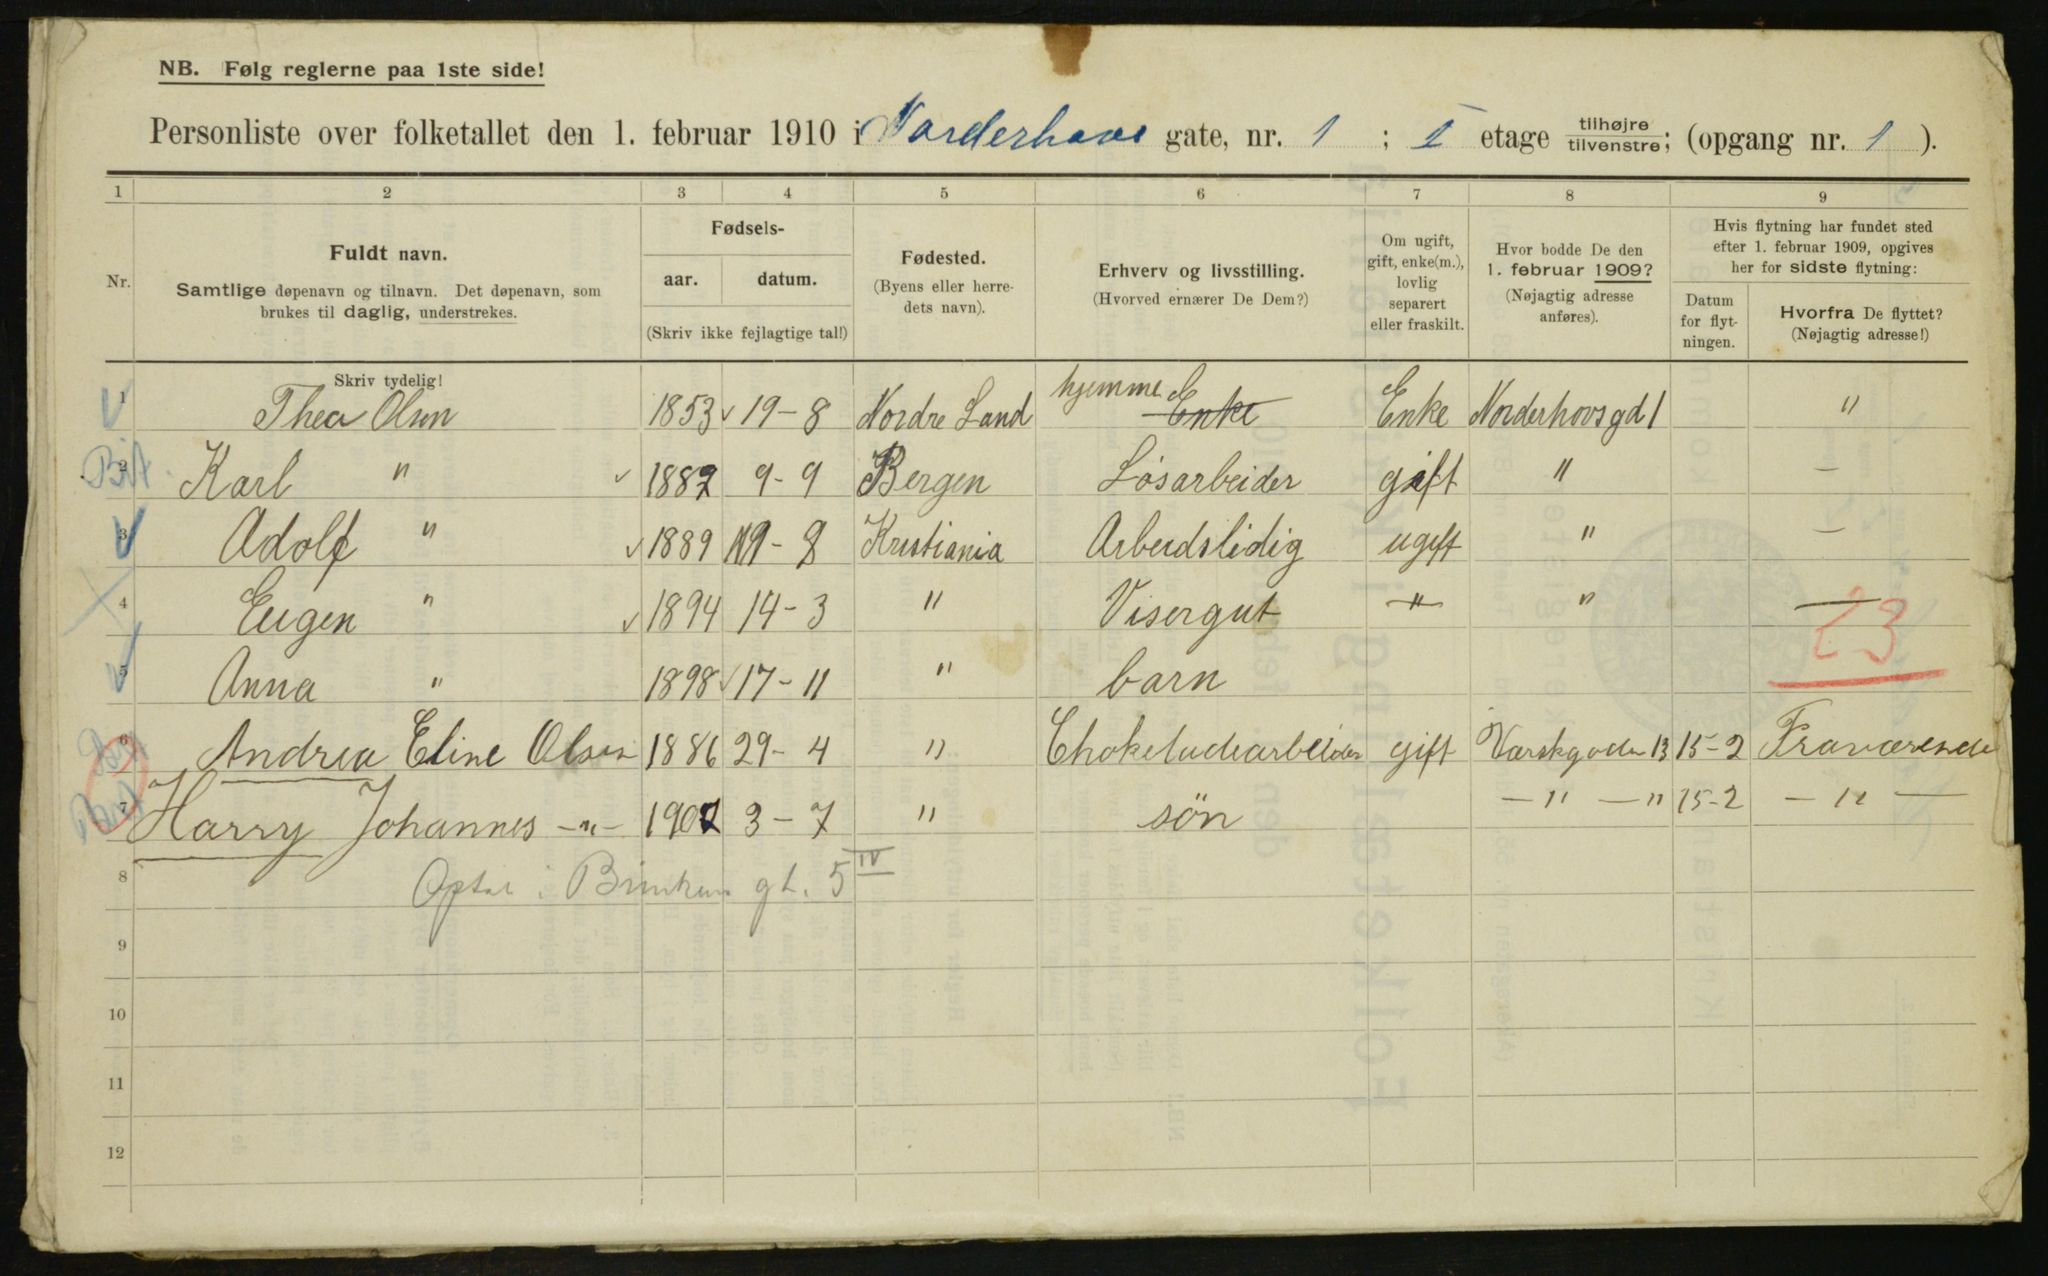 NB. Følg reglerne paa 1ste side!
Personliste over folketallet den 1. februar 1910 i Norderhovs gate, nr. 1 ; I etage tilhøjre tilvenstre; (opgang nr. 1 ).
1 2 3 4 5 6 7 8 9
Nr.
Fuldt navn.
Samtlige døpenavn og tilnavn. Det døpenavn, som
brukes til daglig, understrekes.
Skriv tydelig!
Fødsels-
aar. datum.
(Skriv ikke fejlagtige tal!)
Fødested.
(Byens eller herre-
dets navn).
Erhverv og livsstilling.
(Hvorved ernærer De Dem?)
Om ugift,
gift, enke(m.),
lovlig
separert
eller fraskilt.
Hvor bodde De den
1. februar 1909?
(Nøjagtig adresse
anføres).
Hvis flytning har fundet sted
efter 1. februar 1909, opgives
her for sidste flytning:
Datum
for flyt-
ningen.
Hvorfra De flyttet?
(Nøjagtig adresse!)
1 Thea Olsen 1853 19-8 Nordre Land hjemme Enke Enke Norderhovsgd 1 "
2 Karl " 1882 9-9 Bergen Løsarbeider gift " –
3 Adolf " 1889 19-8 Kristiania Arbeidsledig ugift " –
4 Eugen " 1894 14-3 " Visergut " " —
23
5 Anna " 1898 17-11 " barn
6 Andrea Eline Olsen 1886 29-4 " Chokeladearbeider gift 13 15-2 Fraværende
7 Harry Johannes -"- 1907 3-7 " sön -"- " 15-2 -"-
8 i gt. 5 IV
9
10
11
12